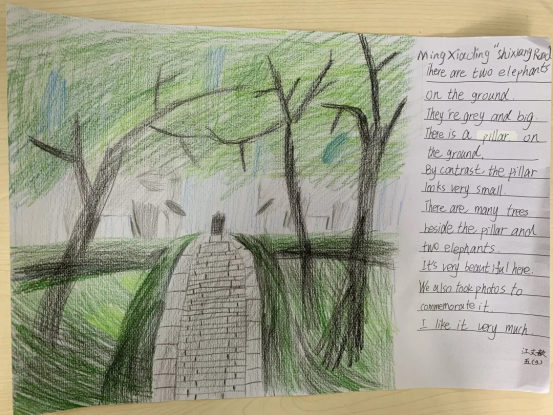 Ming Xiaoling "Shixiang Road
There are two elephants
on the ground.
They're grey and big.
There is a pillar on
the ground.
By contrast the pillar
looks very small.
There are many trees
beside the pillar and
two elephants.
It's very beautiful here.
We also took photos to
commemorate it.
I like it very much.
江文
五(3)